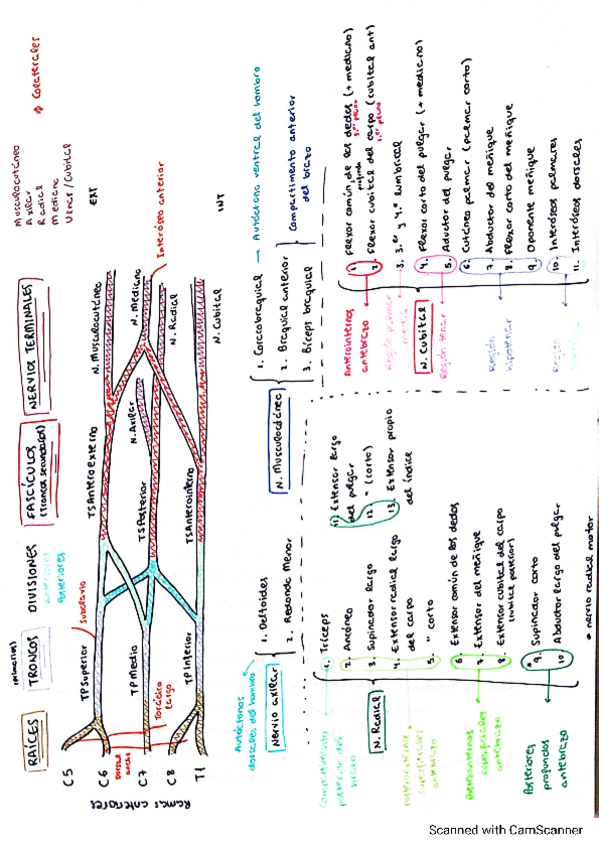 RAÍCES
(primarios)
TRONCOS
DIVISIONES
Anteriores
Posteriores
FASCÍCULOS
(troncos secundarios)
NERVIOS TERMINALES
Musculocutáneo
Axilar
Radial
Mediano
* Colaterales
Ramas anteriores
C5
C6
C7
C8
T1
Dorsal
ancho
TP Superior
Subclavio
TP Medio
Torácico
largo
TP Inferior
TS Anteroexterno
TS Posterior
TS Anterointerno
N. Musculocutáneo
N. Axilar
N. Mediano
N. Radial
N. Cubital
Interóseo anterior
EXT
INT
Autóctonos
dorsales del hombro
Nervio axilar
1. Deltoides
2. Redondo Menor
N. Musculocutáneo
1. Coracobraquial → Autóctono ventral del hombro
2. Braquial anterior
3. Bíceps braquial
Compartimento anterior
del brazo
N. Radial
Compartimento
posterior del
brazo
1. Tríceps
2. Ancóneo
3. Supinador largo
4. Extensor radial largo
del carpo
5. " corto
6. Extensor común de los dedos
7. Extensor del meñique
8. Extensor cubital del carpo
(cubital posterior)
* 9. Supinador corto
10. Abductor largo del pulgar
11) Extensor largo
del pulgar
12. " (corto)
13. Extensor propio
del índice
superficiales
antebrazo
Posteriores
profundos
antebrazo
* nervio radial motor
N. Cubital
Anterointernos
antebrazo
Región palmar
media
Región tenar
Región
hipotenar
Región
1. Flexor común de los dedos (+ mediano)
profundo
2. Flexor cubital del carpo (cubital ant)
3. 3.er y 4.º lumbrical
4. Flexor corto del pulgar (+ mediano)
5. Aductor del pulgar
6. Cutáneo palmar (palmar corto)
7. Abductor del meñique
8. Flexor corto del meñique
9. Oponente meñique
10. Interóseos palmares
11. Interóseos dorsales
Scanned with CamScanner